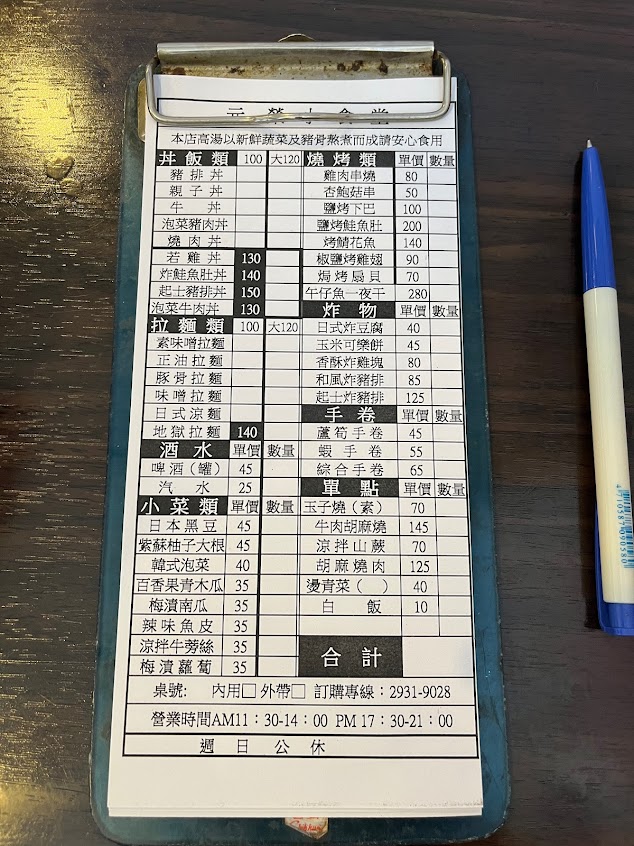 元榮小食堂
本店高湯以新鮮蔬菜及豬骨熬煮而成請安心食用
丼飯類 100 大120
豬排丼
親子丼
牛丼
泡菜豬肉丼
燒肉丼
若雞丼 130
炸鮭魚肚丼 140
起士豬排丼 150
泡菜牛肉丼 130
拉麵類 100 大120
素味噌拉麵
正油拉麵
豚骨拉麵
味噌拉麵
日式涼麵
地獄拉麵 140
酒水 單價 數量
啤酒(罐) 45
汽水 25
小菜類 單價 數量
日本黑豆 45
紫蘇柚子大根 45
韓式泡菜 40
百香果青木瓜 35
梅漬南瓜 35
辣味魚皮 35
涼拌牛蒡絲 35
梅漬蘿蔔 35
燒烤類 單價 數量
雞肉串燒 80
杏鮑菇串 50
鹽烤下巴 100
鹽烤鮭魚肚 200
烤鯖花魚 140
椒鹽烤雞翅 90
焗烤扇貝 70
午仔魚一夜干 280
炸物 單價 數量
日式炸豆腐 40
玉米可樂餅 45
香酥炸雞塊 80
和風炸豬排 85
起士炸豬排 125
手卷 單價 數量
蘆筍手卷 45
蝦手卷 55
綜合手卷 65
單點 單價 數量
玉子燒(素) 70
牛肉胡麻燒 145
涼拌山蕨 70
胡麻燒肉 125
燙青菜( ) 40
白飯 10
合計
桌號: 內用□外帶□ 訂購專線:2931-9028
營業時間AM11:30-14:00 PM 17:30-21:00
週日公休